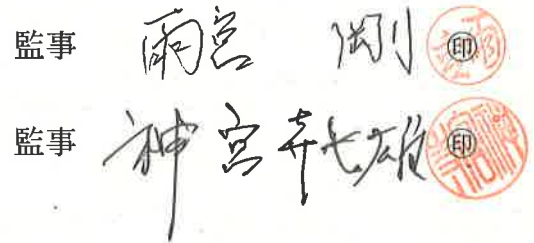 監事 雨宮 剛 ㊞
監事 神宮 㐂七雄 ㊞